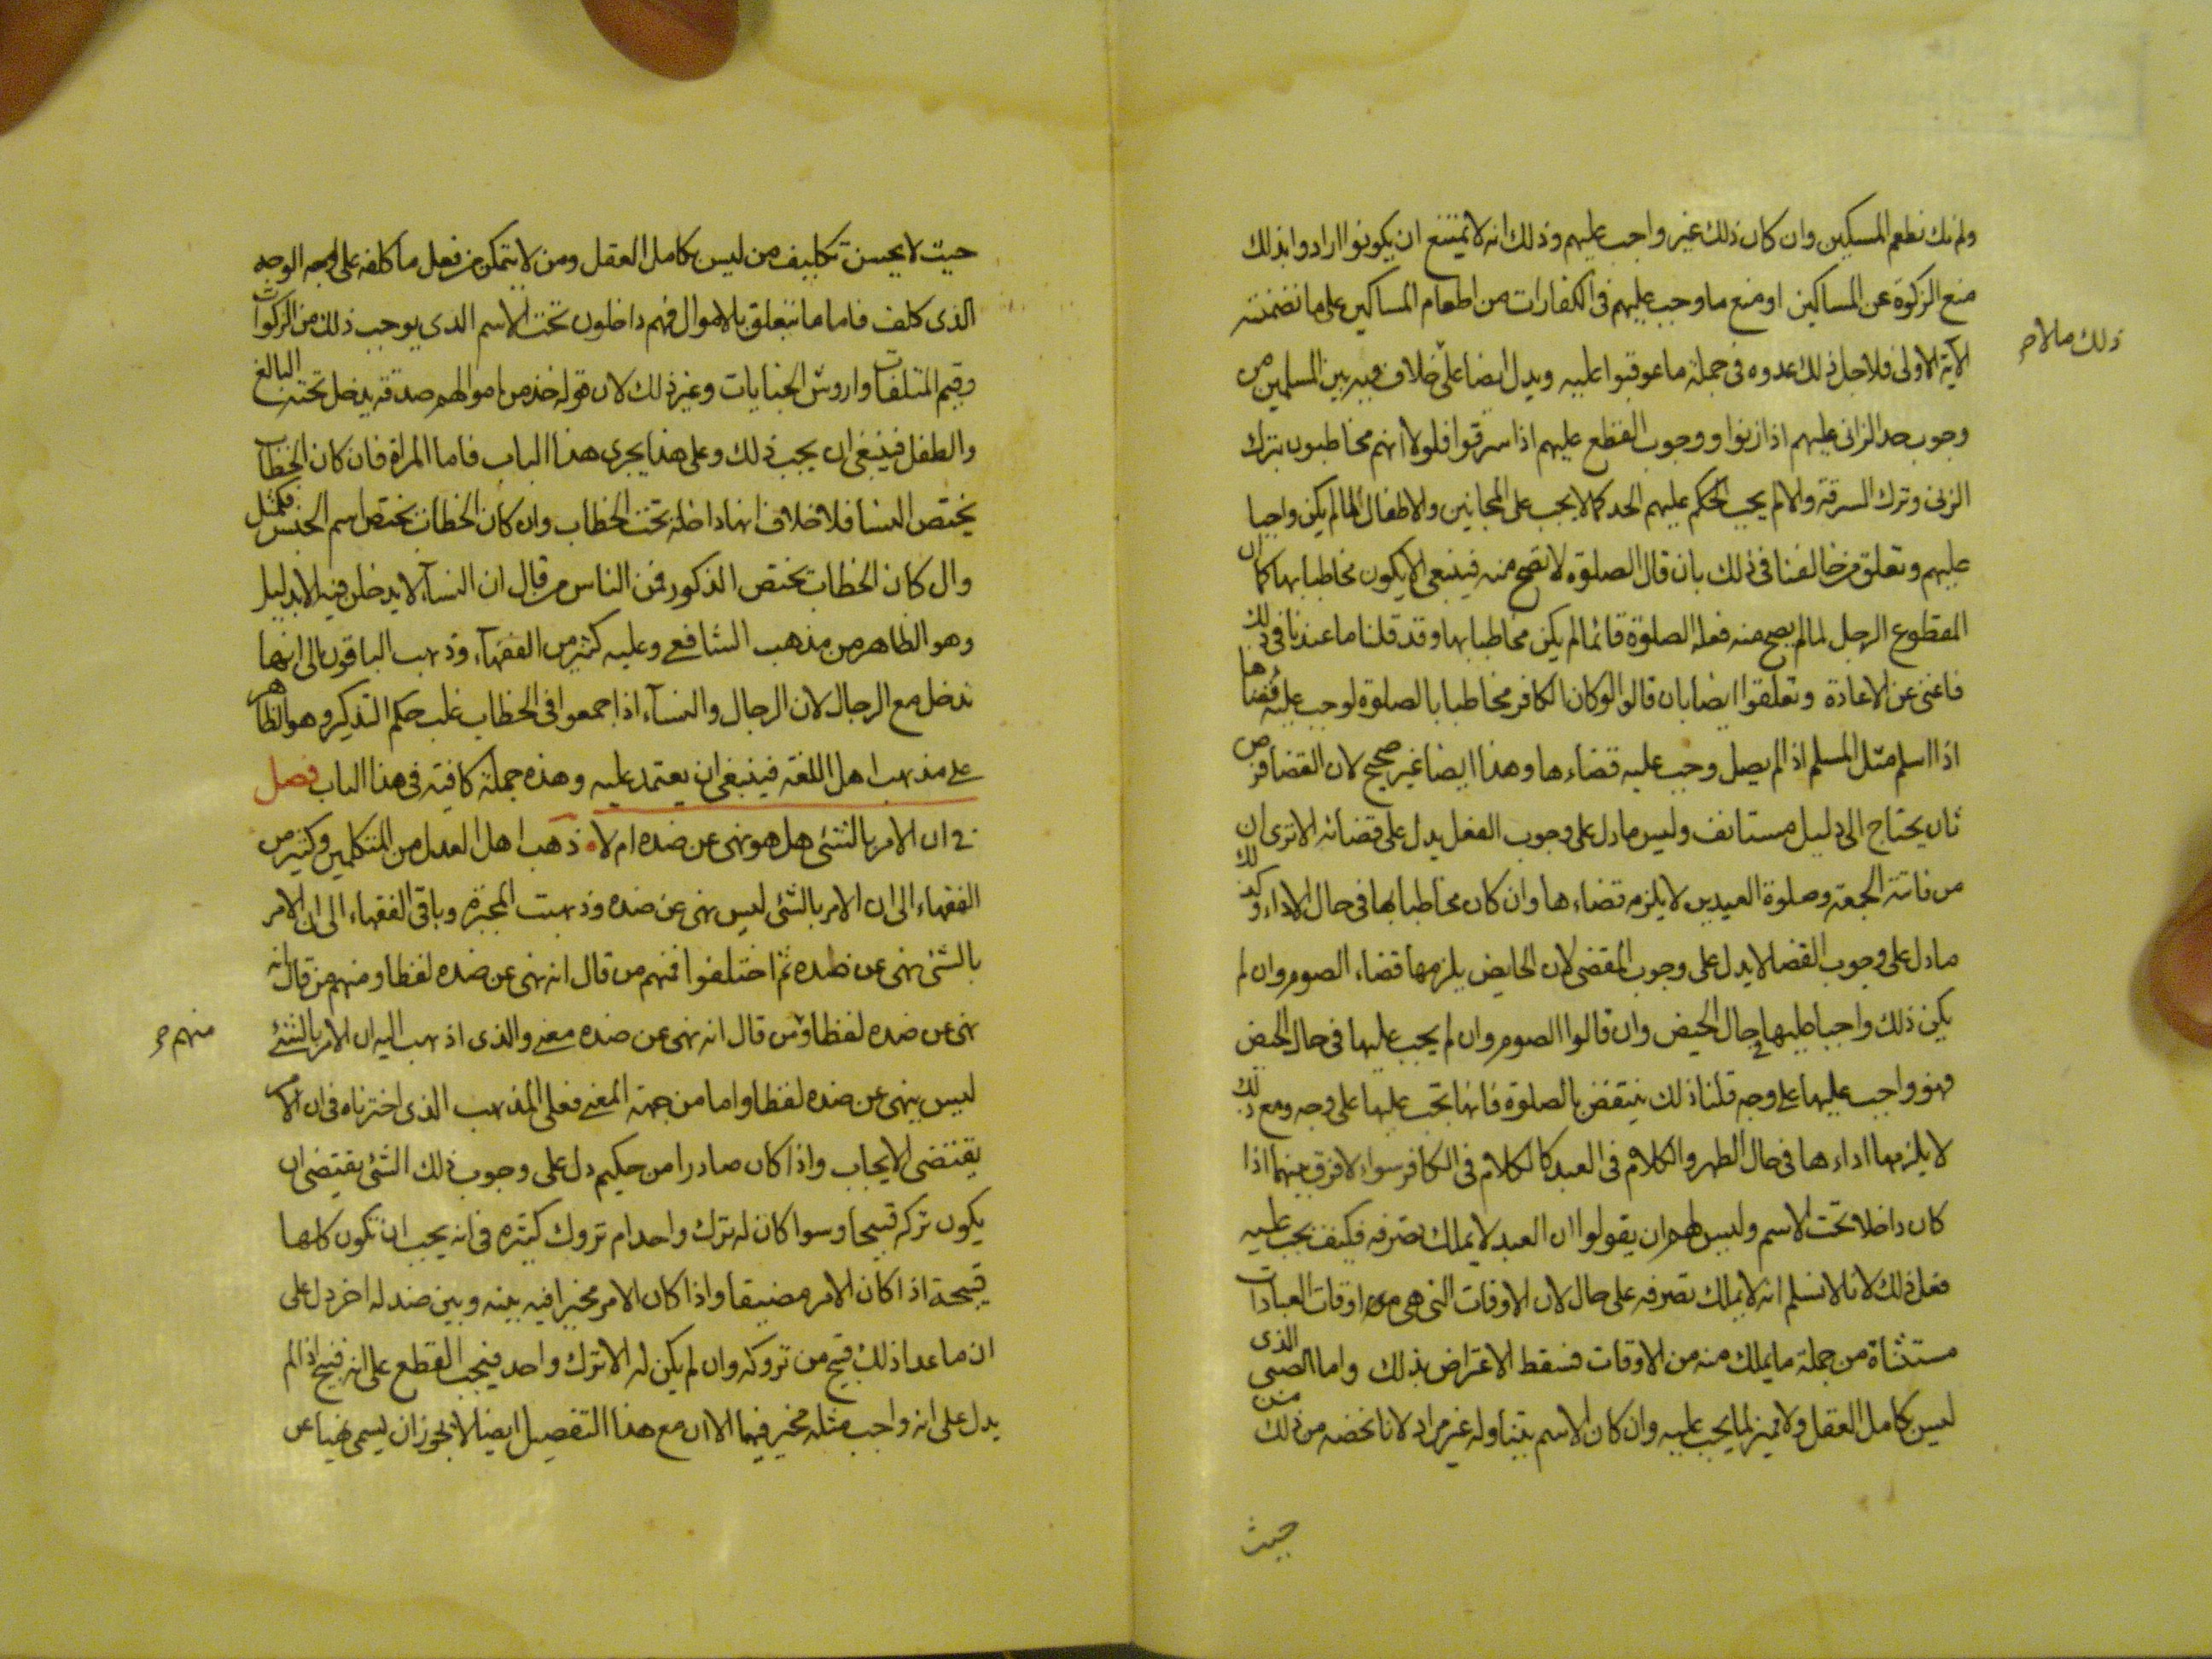 ولم نك نطعم المسكين وان كان ذلك غير واجب عليهم وذلك انه لا يمتنع ان يكونوا ارادوا بذلك
منع الزكوة عن المساكين او منع ما وجب عليهم فى الكفارات من اطعام المساكين على ما تضمنته
ذلك ما لا م
الآية الاولى فلاجل ذلك عدوه فى جملة ما عوقبوا عليه ويدل ايضا على خلاف فيه بين المسلمين من
وجوب حد الزانى عليهم اذا زنوا ووجوب القطع عليهم اذا سرقوا فلولا انهم مخاطبون بترك
الزنى وترك السرقة والا لم يجب الحكم عليهم الحد كما لا يجب على المجانين والاطفال لما لم يكن واجبا
عليهم وتعلق من خالفنا فى ذلك بان قال الصلوة لا تصح منه فينبغى الا يكون مخاطبا بها كما ان
المقطوع الرجل لما لم يصح منه فعله الصلوة قائما لم يكن مخاطبا بها وقد قلنا ما عندنا فى ذلك
فاغنى عن الاعادة وتعلقوا ايضا بان قالوا لو كان الكافر مخاطبا بالصلوة لوجب عليه قضاها
اذا اسلم مثل المسلم اذا لم يصل وجب عليه قضاءها وهذا ايضا غير صحيح لان القضا فرض
ثان يحتاج الى دليل مستانف وليس ما دل على وجوب الفعل يدل على قضائه الا ترى ان
من فاتته الجمعة وصلوة العيدين لا يلزمه قضاءها وان كان مخاطبا بها فى حال الاداء وكذلك
ما دل على وجوب القضا لا يدل على وجوب المقضى لان الحايض يلزمها قضاء الصوم وان لم
يكن ذلك واجبا عليها فى حال الحيض وان قالوا الصوم وان لم يجب عليها فى حال الحيض
فهو واجب عليها على وجه قلنا ذلك ينتقض بالصلوة فانها تجب عليها على وجه ومع ذلك
لا يلزمها اداءها فى حال الطهر والكلام فى العبد كالكلام فى الكافر سواء لا فرق بينهما اذا
كان داخلا تحت الاسم وليس لهم ان يقولوا ان العبد لا يملك تصرفه فكيف يجب عليه
فعل ذلك لانا لا نسلم انه لا يملك تصرفه على حال لان الاوقات التى هى اوقات العبادات
مستثناة من جملة ما يملك منه من الاوقات فسقط الاعتراض بذلك واما الصبى الذى
ليس بكامل العقل ولا تميز لما يجب عليه وان كان الاسم يتناوله غير مراد لانا نخصه من ذلك من
حيث
حيث لا يحسن تكليف من ليس بكامل العقل ومن لا يتمكن من فعل ما كلفه على الوجه الوجه
الذى كلف فاما ما يتعلق بالاموال فهم داخلون تحت الاسم الذى يوجب ذلك من الزكوات
وقيم المتلفات واروش الجنايات وغير ذلك لان قوله خذ من اموالهم صدقة يدخل تحته البالغ
والطفل فينبغى ان يجب ذلك وعلى هذا يجرى هذا الباب فاما المراة فان كان الخطاب
يختص النسا فلا خلاف انها داخلة تحت الخطاب وان كان الخطاب يختص اسم الجنس فكمثل
وان كان الخطاب يختص الذكور فمن الناس من قال ان النسآء لا يدخلن فيه الا بدليل
وهو الظاهر من مذهب الشافعى وعليه كثير من الفقهآء وذهب الباقون الى انها
تدخل مع الرجال لان الرجال والنسآء اذا جمعوا فى الخطاب غلب حكم التذكير وهو الظاهر
على مذهب اهل اللغة فينبغى ان يعتمد عليه وهذه جملة كافية فى هذا الباب فصل
فى ان الامر بالشئ هل هو نهى عن ضده ام لا ذهب اهل العدل من المتكلمين وكثير من
الفقهاء الى ان الامر بالشئ ليس نهى عن ضده وذهبت المجبرة وباقى الفقهاء الى ان الامر
بالشئ نهى عن ظده ثم اختلفوا فمنهم من قال انه نهى عن ضده لفظا ومنهم من قال انه
نهى عن ضده لفظا ومن قال انه نهى عن ضده معنى والذى اذهب اليه ان الامر بالشئ
منهم م
ليس ينهى عن ضده لفظا واما من جهة المعنى فعلى المذهب الذى اخترناه فى ان الامر
يقتضى الايجاب واذا كان صادرا من حكيم دل على وجوب ذلك الشئ يقتضى ان
يكون تركه قبيحا وسوا كان له ترك واحد ام تروك كثيره فى انه يجب ان تكون كلها
قبيحة اذا كان الامر مضيقا واذا كان الامر مخيرا فيه بينه وبين ضد له اخر دل على
ان ما عدا ذلك قبيح من تروكه وان لم يكن له الا ترك واحد فيجب القطع على انه قبيح اذا لم
يدل على انه واجب مثله مخير فيها الا ان مع هذا التفصيل ايضا لا يجوز ان يسمى نهيا عن